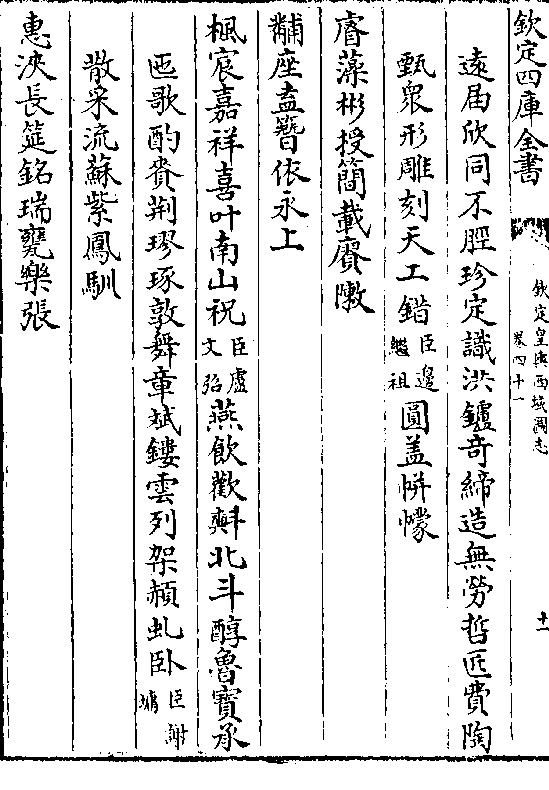 欽定四庫全書
欽定皇輿西域圖志
卷四十一
十一
遠届欣同不脛珍定識洪鑪竒締造無勞哲匠費陶
甄衆形雕刻天工錯臣邊繼祖圓盖帡幪
睿藻彬授簡載賡陳
黼座盍簪依永上
楓宸嘉祥喜叶南山祝臣盧文弨燕飲歡㪺北斗醇魯寳承
匜歌酌賚荆璆琢敦舞章斌鏤雲列架頳虬卧臣謝墉
散采流蘇紫鳳馴
惠浹長筵銘瑞甕樂張